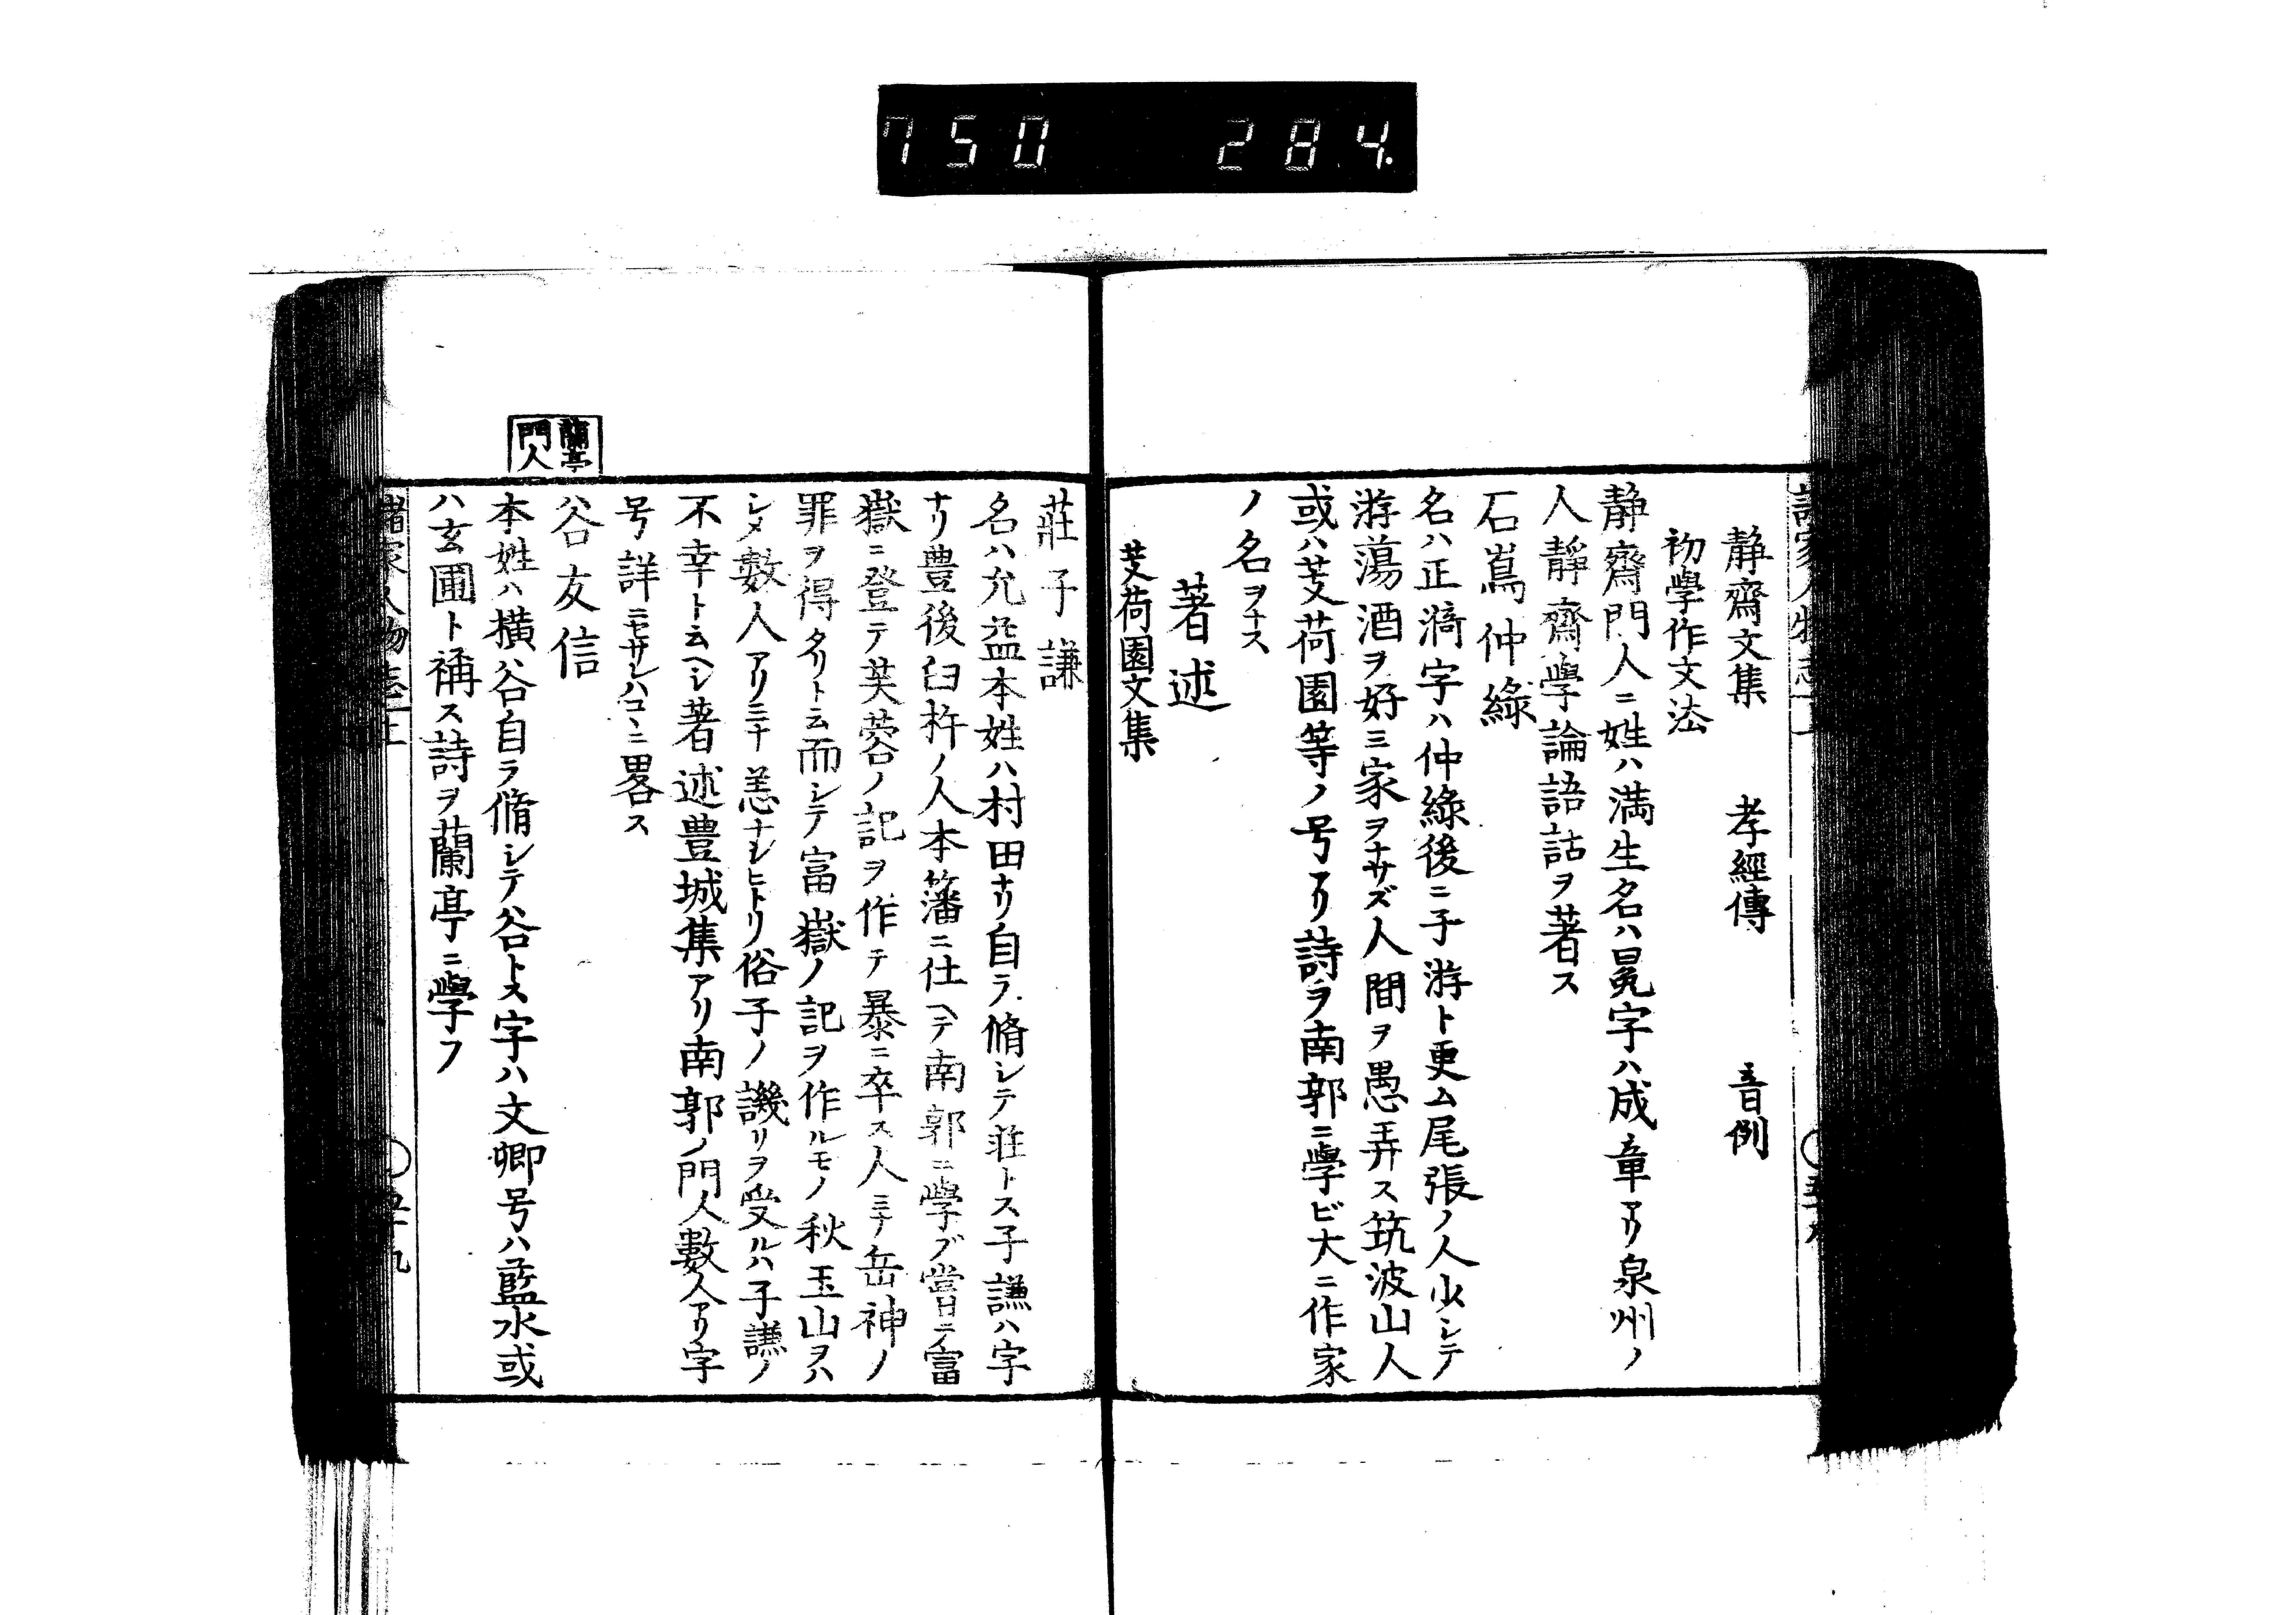 750 284.
静齋文集 孝經傳 音例
初學作文法
静齋門人ニ姓ハ満生名ハ晃字ハ成章アリ泉州ノ
人静齋學論語詁ヲ著ス
石嶌仲綠
名ハ正漪字ハ仲綠後ニ子游ト更ム尾張ノ人少シテ
游蕩酒ヲ好ミ家ヲナサズ人間ヲ愚弄ス筑波山人
或ハ芰荷園等ノ号アリ詩ヲ南郭ニ學ビ大ニ作家
ノ名ヲナス
著述
芰荷園文集
莊子謙
名ハ允益本姓ハ村田ナリ自ラ脩シテ莊トス子謙ハ字
ナリ豊後臼杵ノ人本藩ニ仕ヘテ南郭ニ學ブ嘗ニ富
嶽ニ登テ芙蓉ノ記ヲ作テ暴ニ卒ス人ミナ岳神ノ
罪ヲ得タリト云而シテ富嶽ノ記ヲ作ルモノ秋玉山ヲハ
シメ數人アリミナ恙ナシヒトリ俗子ノ譏リヲ受ルハ子謙ノ
不幸ト云ヘシ著述豊城集アリ南郭ノ門人數人アリ字
号詳ニセサレハコヽニ畧ス
蘭亭
門人
谷友信
本姓ハ横谷自ラ脩シテ谷トス字ハ文卿号ハ藍水或
ハ玄圃ト稱ス詩ヲ蘭亭ニ學フ
諸家人物志上 五十九